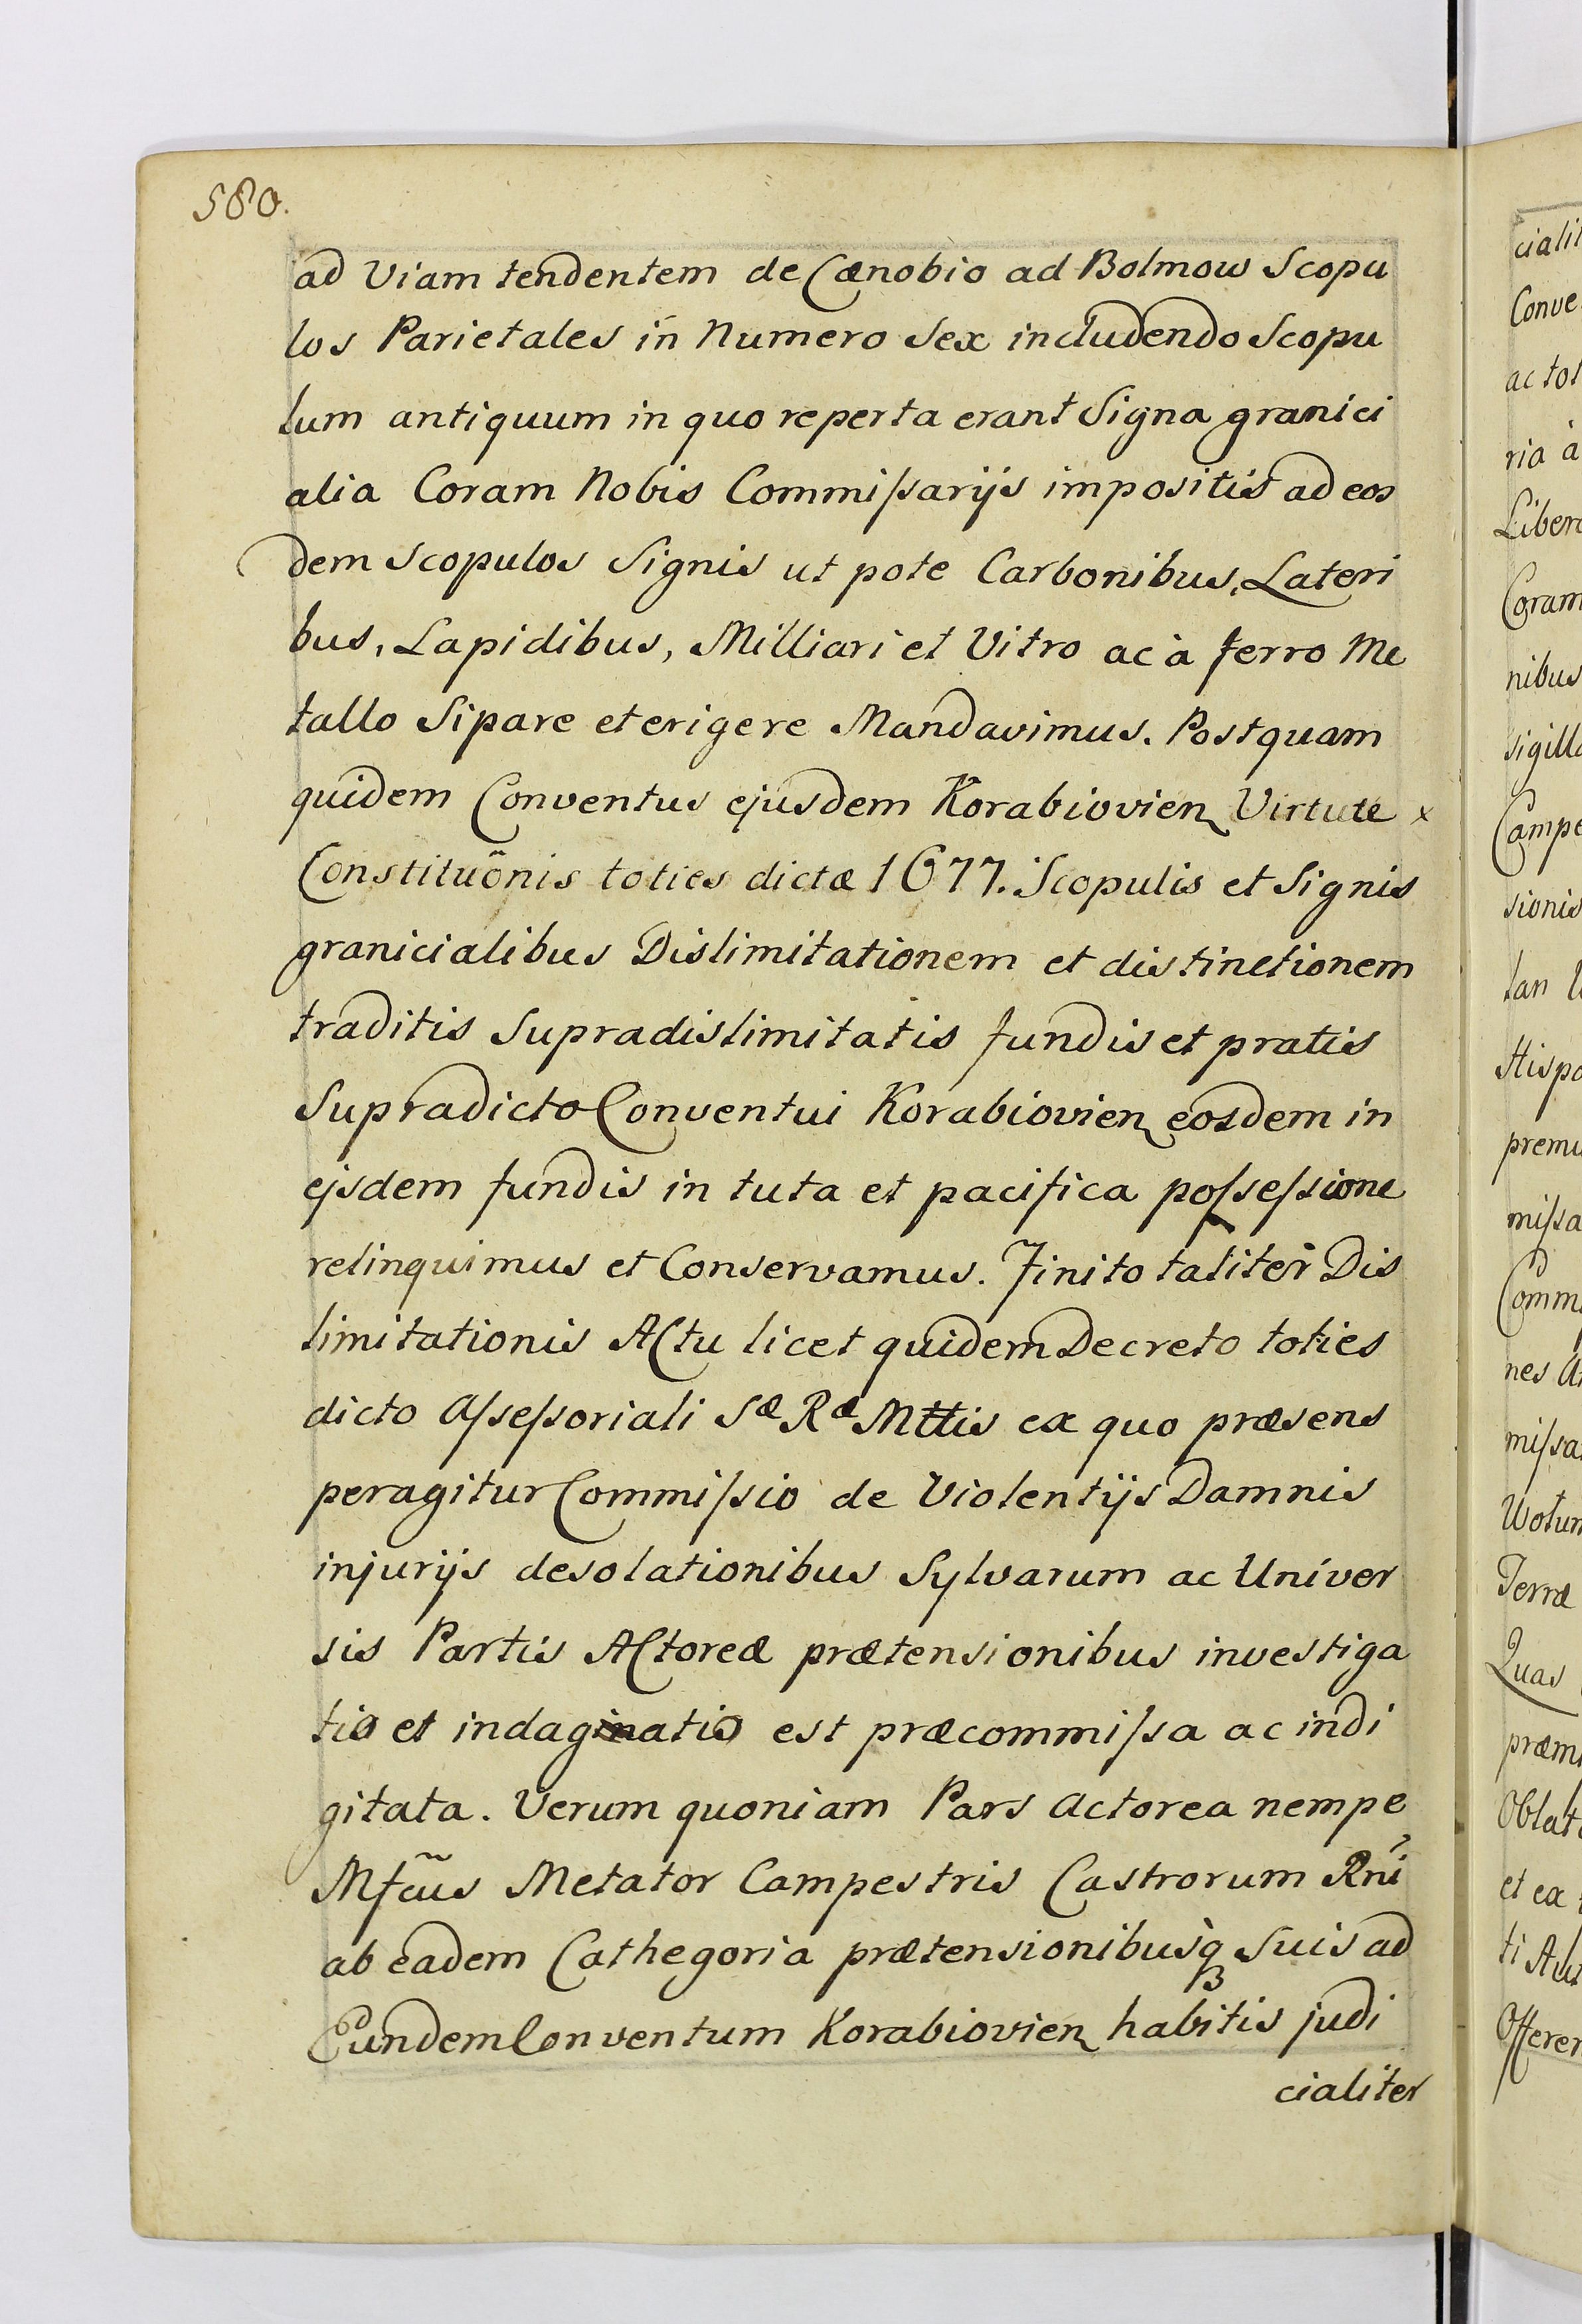 580.
ad Viam tendentem de Cænobio ad Bolmow Scopu
los Parietales in Numero Sex includendo Scopu
lum antiquum in quo reperta erant Signa granici
alia Coram Nobis Commiſsarijs impositis ad eos
dem Scopulos Signis ut pote Carbonibus, Lateri
bus, Lapidibus, Milliari et Vitro ac à ferro Me
tallo Sipare et erigere Mandavimus. Postquam
quidem Conventus ejusdem Korabiovien Virtute x
Constituõnis toties dictæ 1677. Scopulis et Signis
granicialibus Dislimitationem et distinctionem
traditis Supradislimitatis fundis et pratis
Supradicto Conventui Korabiovien eosdem in
ejsdem fundis in tuta et pacifica poſseſsione
relinquimus et Conservamus. Finito taliter Dis
limitationis Actu licet quidem Decreto toties
dicto Aſseſsoriali Sæ Ræ Mttis ex quo præsens
peragitur Commiſsio de Violentijs Damnis
injurijs desolationibus Sylvarum ac Univer
sis Partis Actoreæ prætensionibus investiga
tio et indaginatio est præcommiſsa ac indi
gitata. Verum quoniam Pars Actorea nempe
Mfcus̃ Metator Campestris Castrorum Rni
ab eadem Cathegoria prætensionibusq Suis ad
Eundem Conventum Korabiovien habitis judi
cialiter
cialit
Conve
actor
ria à
Libera
Coram
nibus
sigilla
Campe
sionis
tan
Hispa
premu
miſsa
Comm
nes
miſsa
Wotum
Terræ
Quas
præmi
Oblat
et ex
ti Act
Offeren